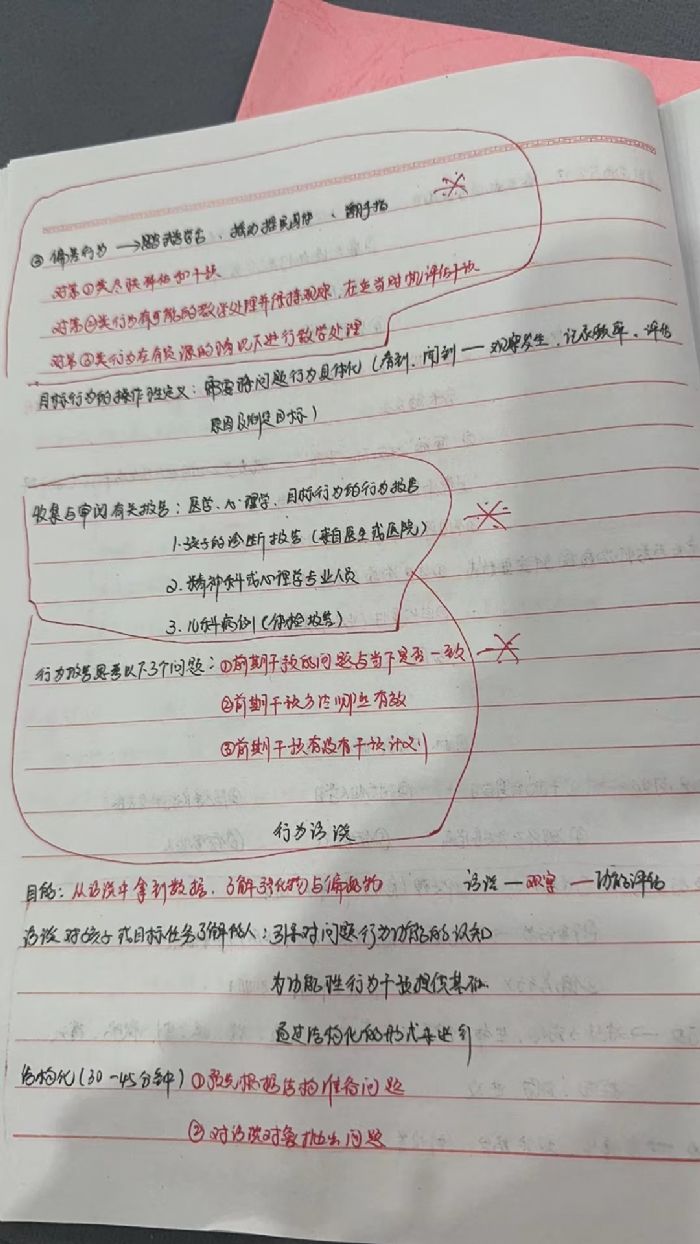 ③ 偏差行为 → 、翻手指
对第①类尽快评估和干预
对第②类行为有可能的教学处理并保持观察，在适当时机评估干预
对第③类行为在有资源的情况下进行教学处理
目标行为的操作性定义：需要将问题行为具体化（看到、闻到 — 观察发生、记录频率、评估
原因及制定目标）
收集与审阅有关报告：医学、心理学、目标行为的行为报告
1.孩子的诊断报告（来自医生或医院）
2.精神科或心理学专业人员
3.儿科病例（体检报告）
行为报告思考以下3个问题：①前期干预的问题与当下是否一致
②前期干预方法哪些有效
③前期干预有没有干预计划
行为访谈
目的：从访谈中拿到数据、了解强化物与偏好物 访谈 — 观察 — 功能评估
访谈对孩子或目标任务了解的人：引来对问题行为功能的认知
为功能性行为干预提供基础
通过结构化的形式来进行
结构化（30-45分钟）①预先根据结构准备问题
②对访谈对象抛出问题